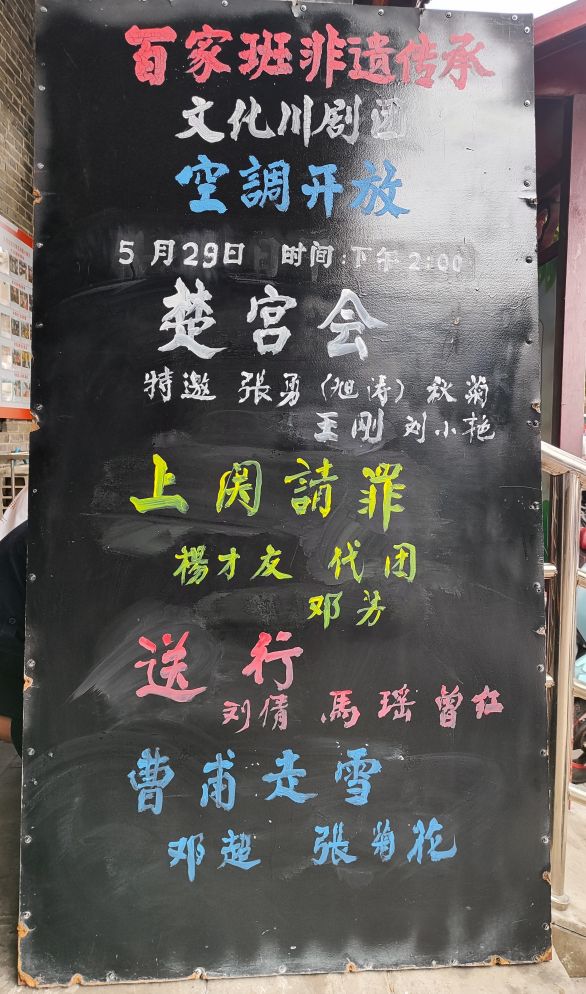 百家班非遗传承
文化川剧团
空調开放
5月29日 时间:下午2:00
楚宫会
特邀 張勇（旭涛）秋菊
王刚 刘小艳
上関請罪
楊才友 代团
邓芳
送行
刘倩 馬瑶 曾红
曹甫走雪
邓超 張菊花